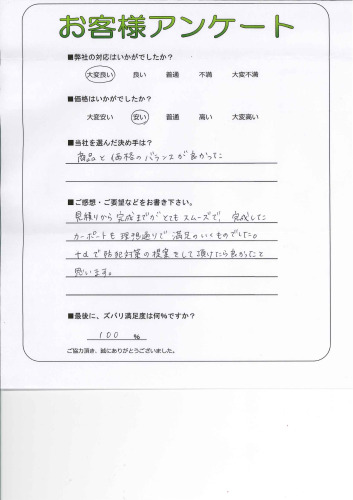 お客様アンケート
■弊社の対応はいかがでしたか？
大変良い　良い　普通　不満　大変不満
■価格はいかがでしたか？
大変安い　安い　普通　高い　大変高い
■当社を選んだ決め手は？
商品と価格のバランスが良かった
■ご感想・ご要望などをお書き下さい。
見積りから完成までがとてもスムーズで、完成した
カーポートも理想通りで満足のいくものでした。
+αで防犯対策の提案をして頂けたら良かったと
思います。
■最後に、ズバリ満足度は何％ですか？
100 %
ご協力頂き、誠にありがとうございました。